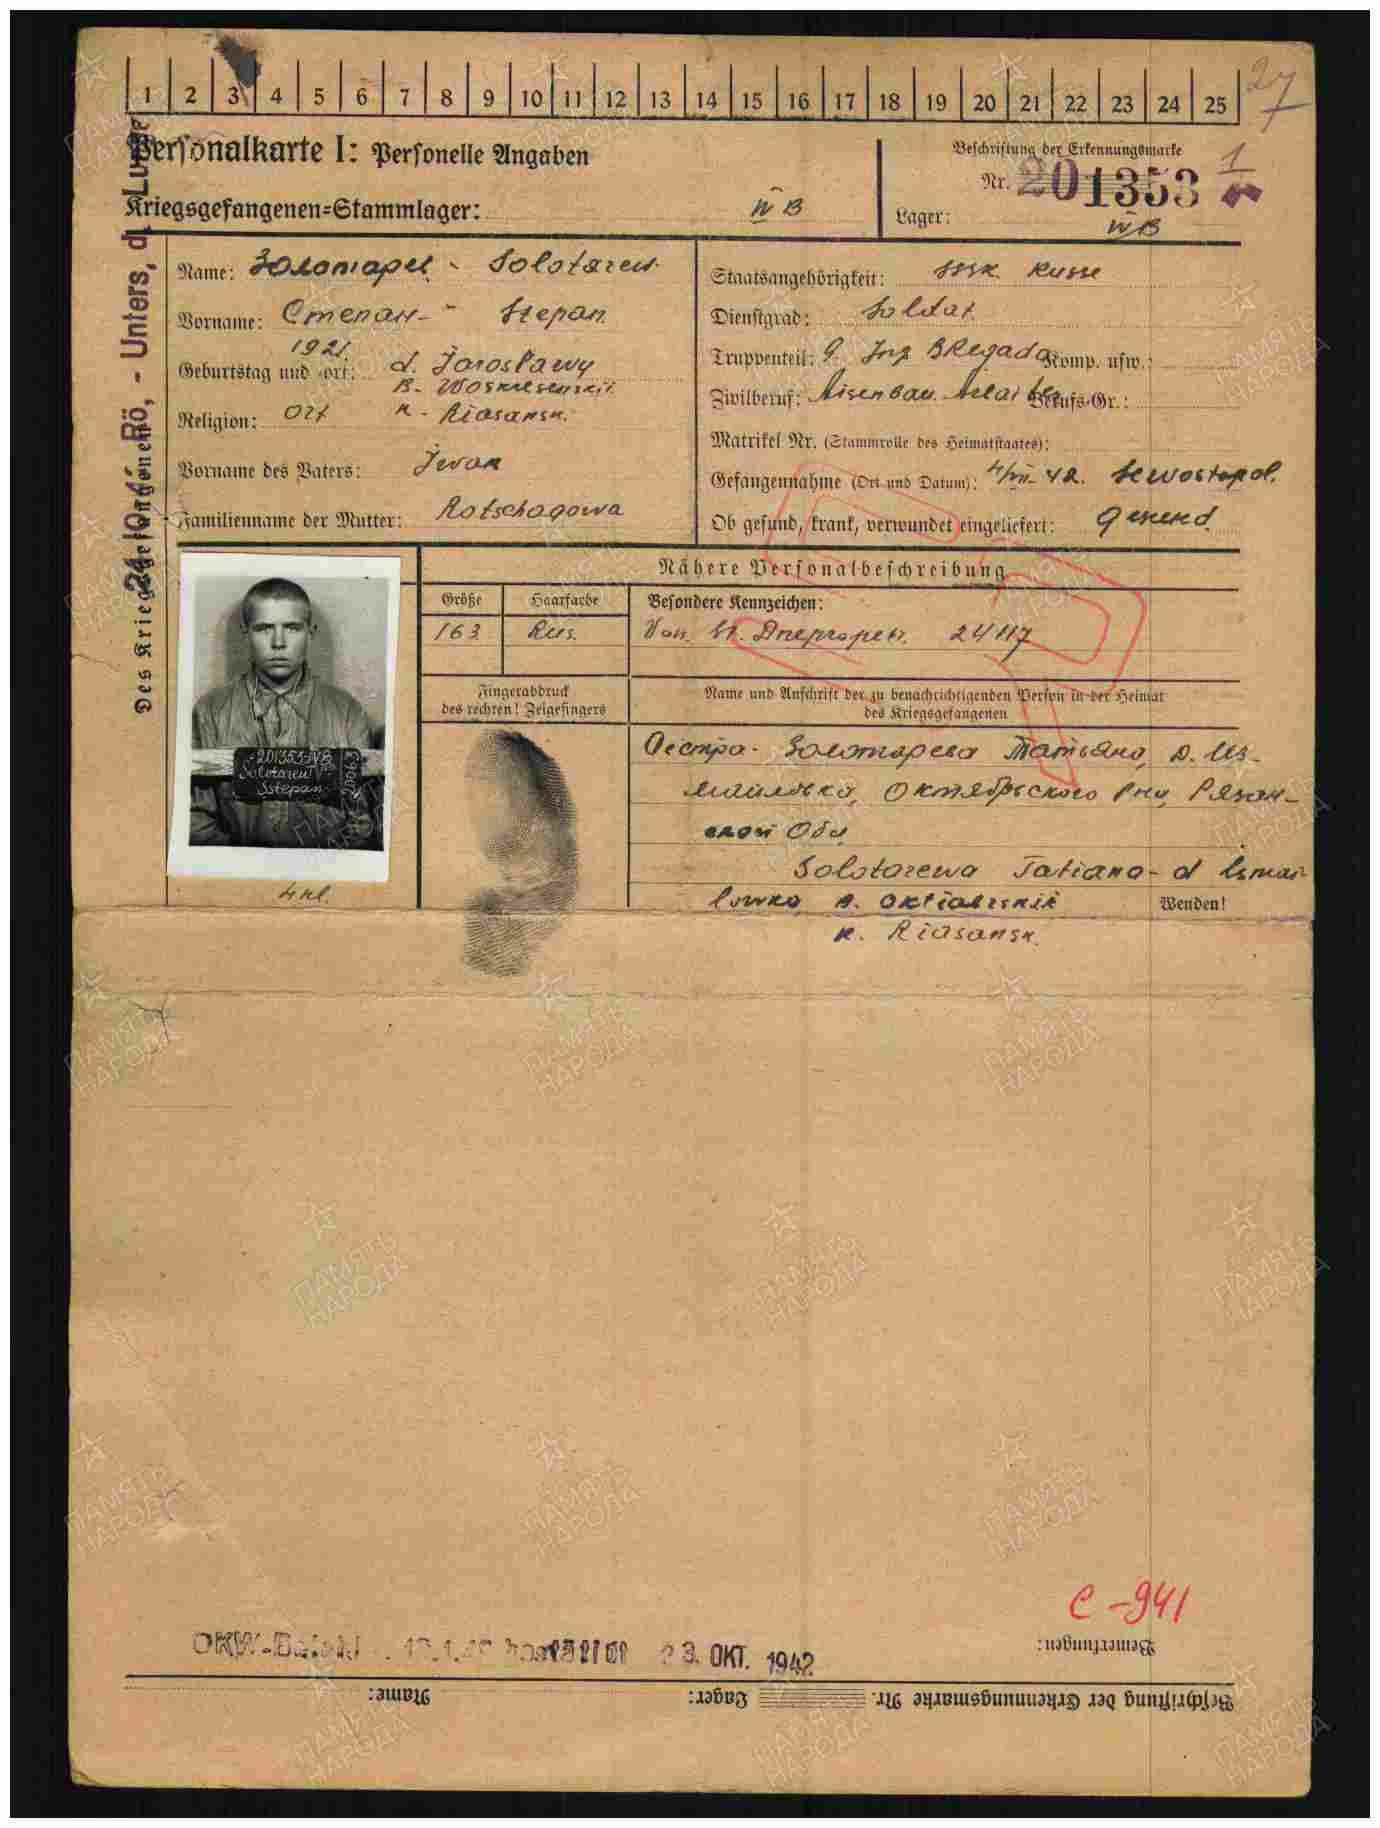 1 2 3 4 5 6 7 8 9 10 11 12 13 14 15 16 17 18 19 20 21 22 23 24 25
27
Personalkarte I: Personelle Angaben
Beschriftung der Erkennungsmarke
Nr. 201353
1
Kriegsgefangenen=Stammlager: IV B
Lager: IV B
Name: Золотарев - Solotarew.
Vorname: Степан - Stepan.
Geburtstag und -ort: 1921. d. Jaroslawy
R. Woskresenskii.
K - Riasansk.
Religion: Ort
Vorname des Vaters: Iwan
Familienname der Mutter: Rotschagowa
Staatsangehörigkeit: SSSR. Russe
Dienstgrad: Soldat.
Truppenteil: 9. Ing BRegada Komp. usw.:
Zivilberuf: Aisenbau. Arbaiter Berufs-Gr.:
Matrikel Nr. (Stammrolle des Heimatstaates):
Gefangennahme (Ort und Datum): 4/VII-42. Sewostopol.
Ob gesund, krank, verwundet eingeliefert: Gesund.
Des Kriegsgefangenen
24.10.42 Rö, - Unters, d. Lunge
Nähere Personalbeschreibung
Größe
Haarfarbe
Besondere Kennzeichen:
163
Rus.
Von. St. Dnepropetr. 24117
Fingerabdruck
des rechten! Zeigefingers
Name und Anschrift der zu benachrichtigenden Person in der Heimat
des Kriegsgefangenen
201353-IVB
Solotarew
Sstepan
Сестра - Золотарева Татьяна, д. Из-
майловка, Октябрьского р-на, Рязан-
ской Обл
Solotarewa Tatiana - d Ismai
lowka R. Oktiabrskii
K. Riasansk.
4 kl.
Wenden!
C-941
Bemerkungen:
23. OKT. 1942
Beschriftung der Erkennungsmarke Nr. Lager: Name:
ПАМЯТЬ НАРОДА